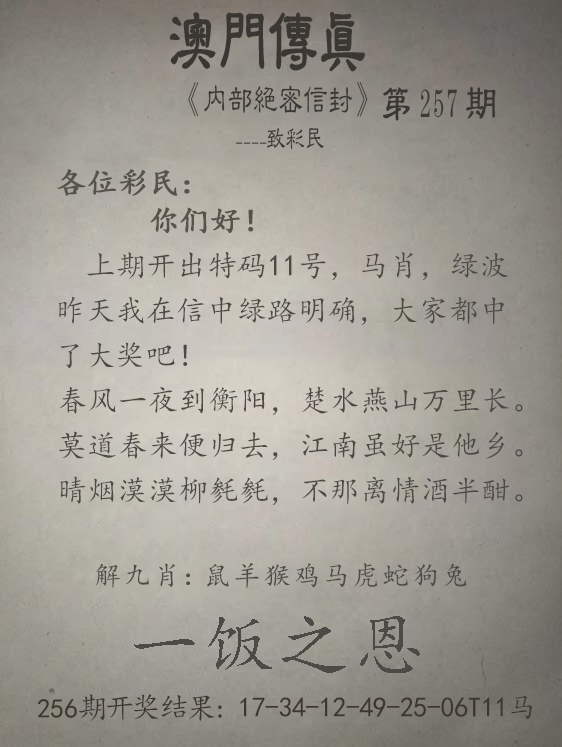 澳門傳真
《内部絕密信封》第257期
----致彩民
各位彩民：
你们好！
上期开出特码11号，马肖，绿波
昨天我在信中绿路明确，大家都中
了大奖吧！
春风一夜到衡阳，楚水燕山万里长。
莫道春来便归去，江南虽好是他乡。
晴烟漠漠柳毵毵，不那离情酒半酣。
解九肖：鼠羊猴鸡马虎蛇狗兔
一饭之恩
256期开奖结果：17-34-12-49-25-06T11马